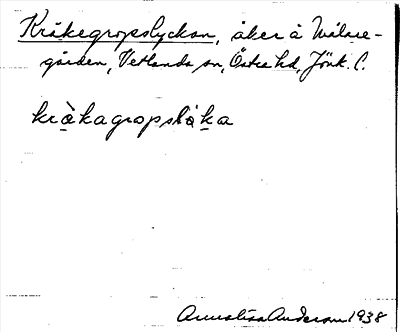 Kråkegropslyckan, åker å Målare-
gården, Vetlanda sn, Östra hd, Jönk. l.
kråkagropslåka
Annalisa Anderson 1938